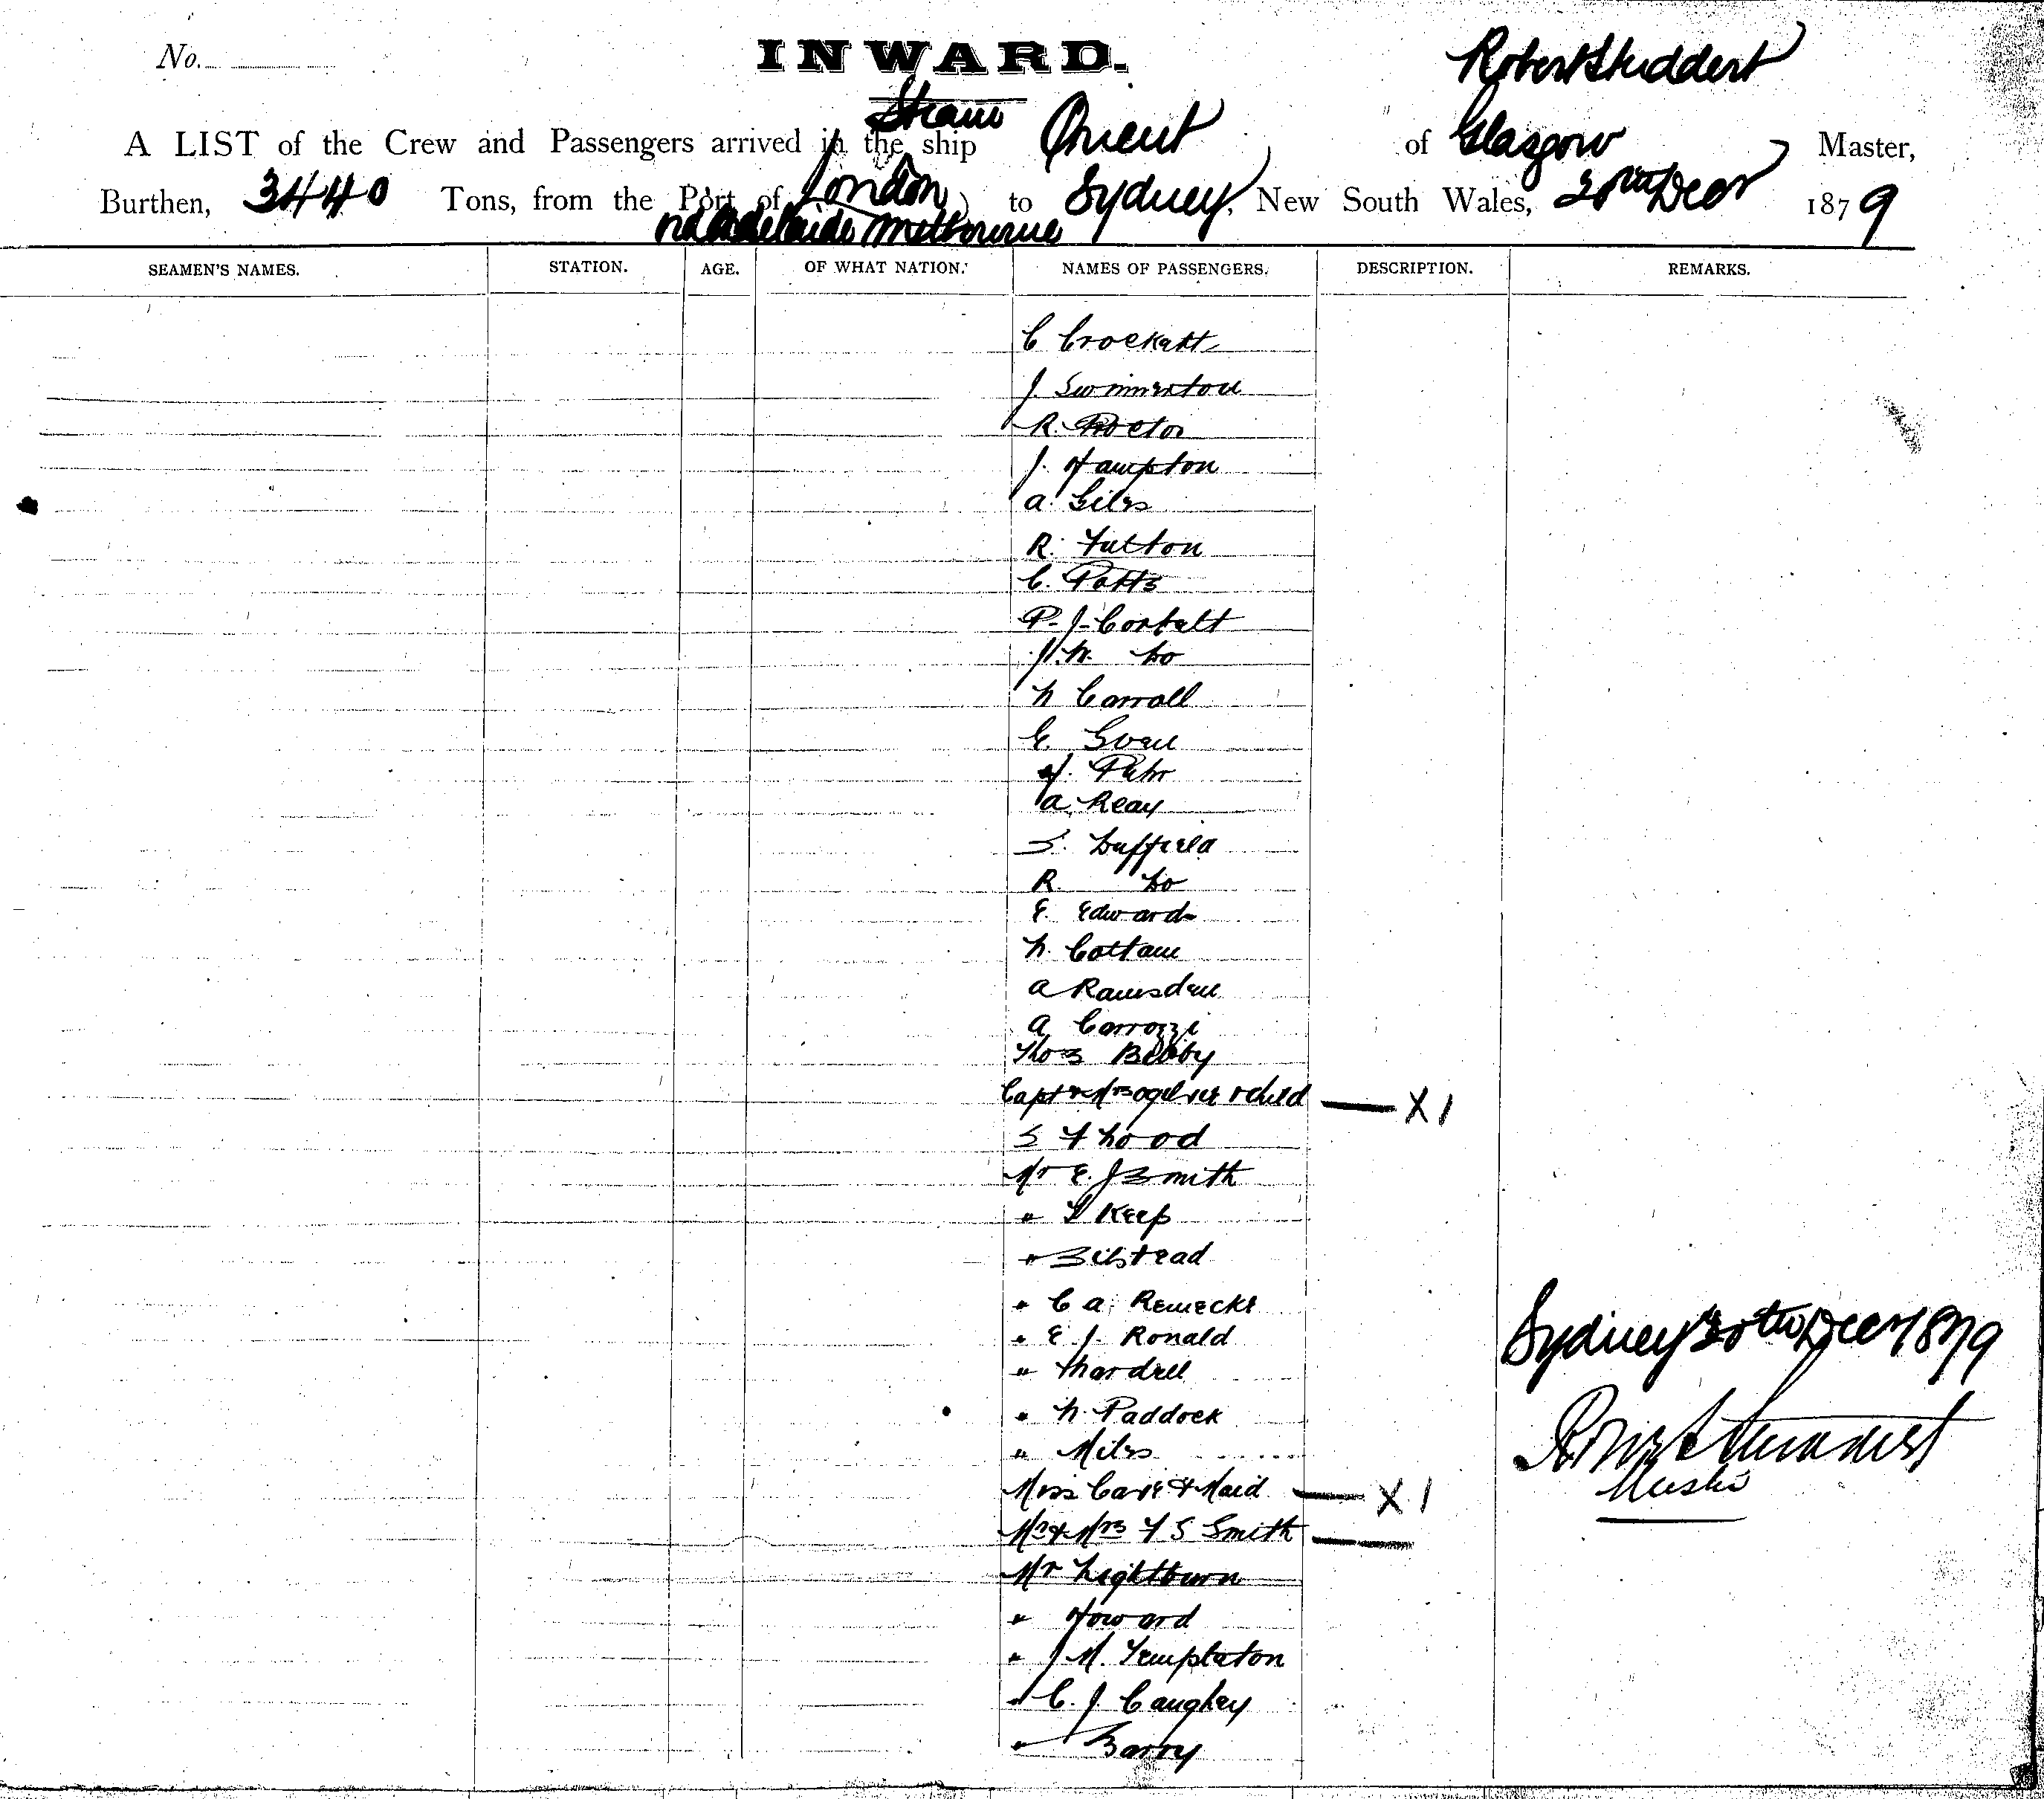 No.
INWARD.
Robert Studdert
Steam
A LIST of the Crew and Passengers arrived in the ship Orient of Glasgow Master,
Burthen, 3440 Tons, from the Port of London to Sydney, New South Wales, 30th Decr 1879
via Adelaide Melbourne
SEAMEN'S NAMES. STATION. AGE. OF WHAT NATION. NAMES OF PASSENGERS. DESCRIPTION. REMARKS.
C Crockett
J. Swinnerton
R. Proctor
J. Hampton
A. Giles
R. Fulton
C. Potts
P. J. Corbett
J. W. Do
W Carroll
E.
J.
A. Reay
S. Duffield
R Do
E. Edwards
W. Cottam
A Ramsden
A Carrozzi
Thos Bibby
Capt & Mrs Ogilvie & Child — X 1
S F Wood
Mr E. J Smith
" Keep
" Bilstead
" C A. Reinecke
" E. J. Ronald
" Thardell
" W. Paddock
" Miles
Miss Cave & Maid — X 1
Mr & Mrs F S Smith —
Mr Lightburn
" Howard
" J M. Templeton
" C. J. Caughey
" Barry
Sydney 30th Decr 1879
Robert Studdert
Master